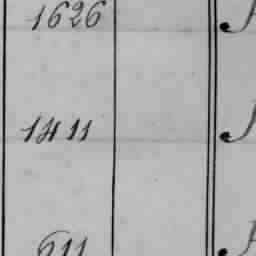 1626
1411
611